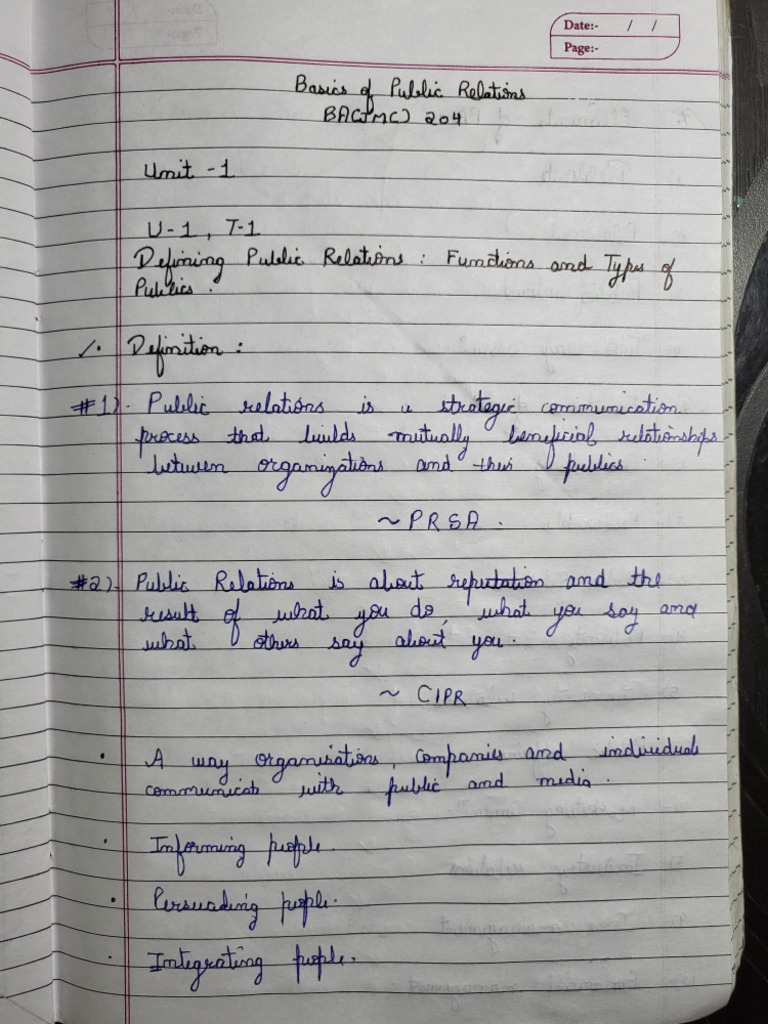 Date:- / /
Page:-
Basics of Public Relations
BA(JMC) 204
Unit -1
U-1, T-1
Defining Public Relations : Functions and Types of
Publics :
Definition :
#1). Public relations is a strategic communication
process that builds mutually beneficial relationships
between organizations and their publics
~ PRSA .
#2). Public Relations is about reputation and the
result of what you do, what you say and
what others say about you.
~ CIPR
• A way organisations, companies and individual
communicate with public and media .
• Informing people.
• Persuading people.
• Integrating people.